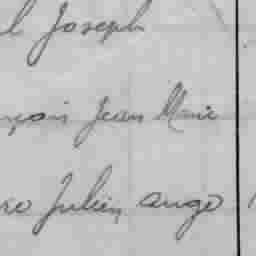 l Joseph
nçois Jean Marie
re Julien ange